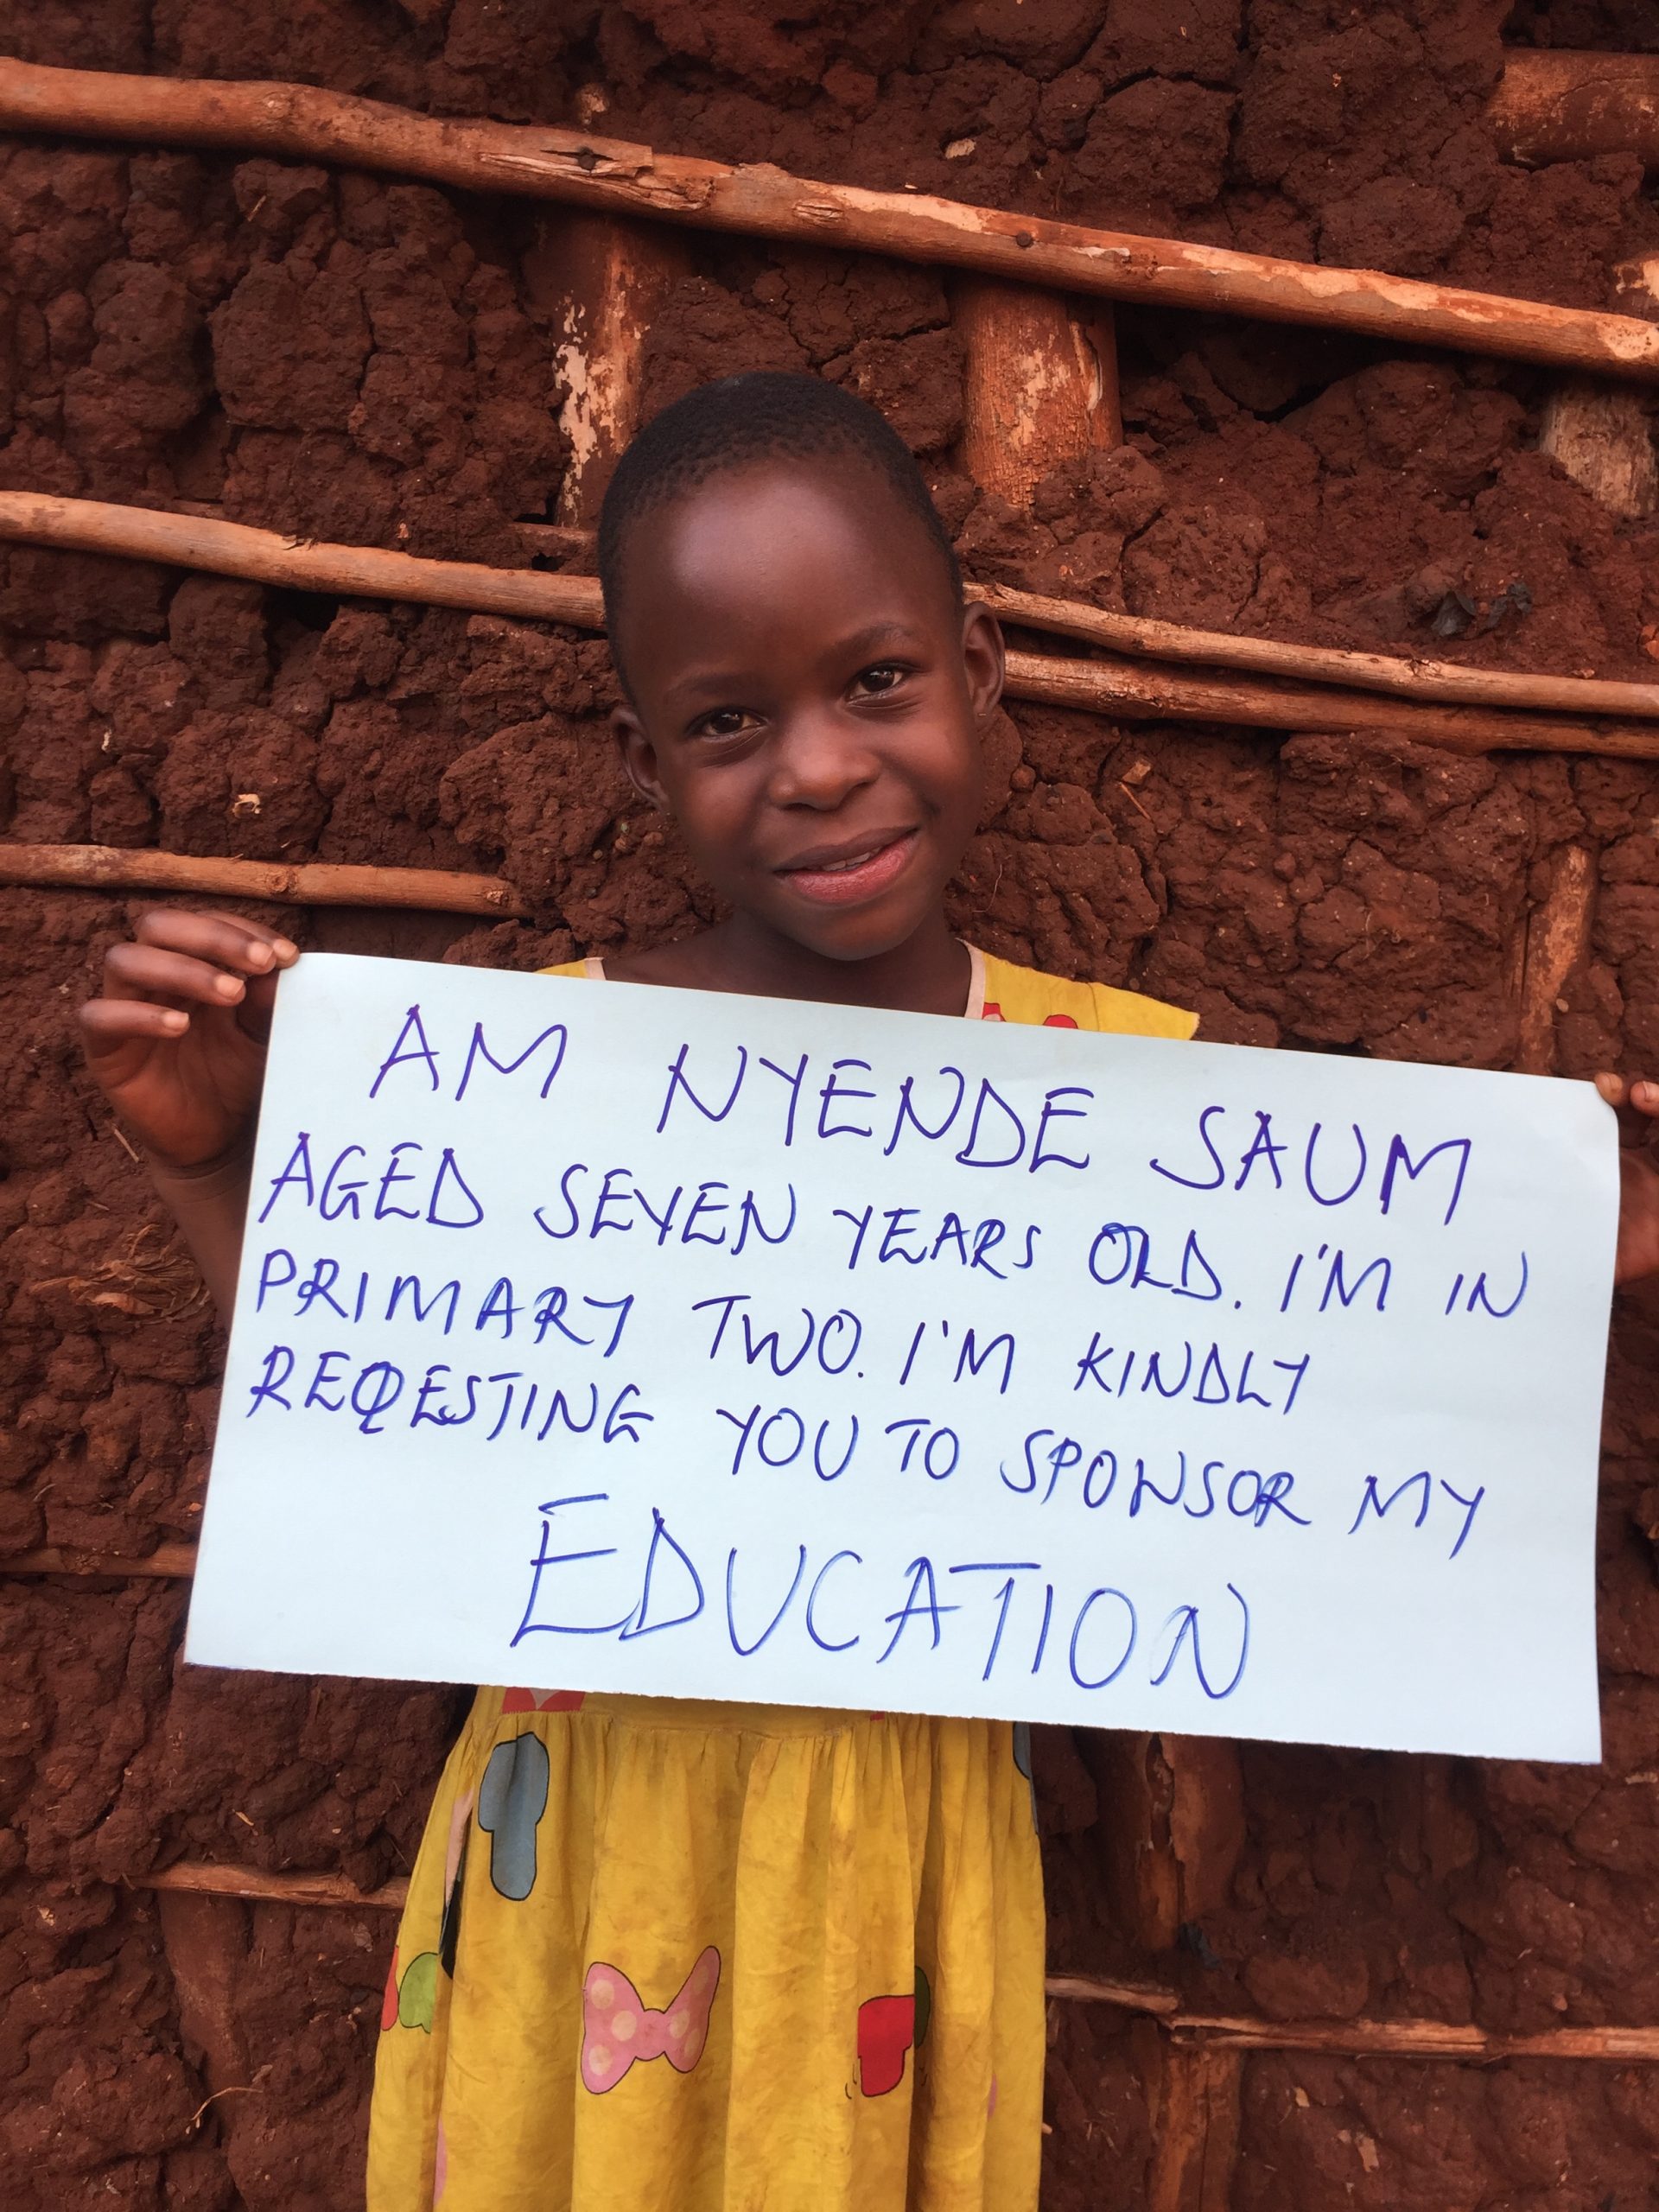 AM NYENDE SAUM
AGED SEVEN YEARS OLD. I'M IN
PRIMARY TWO. I'M KINDLY
REQESTING YOU TO SPONSOR MY
EDUCATION